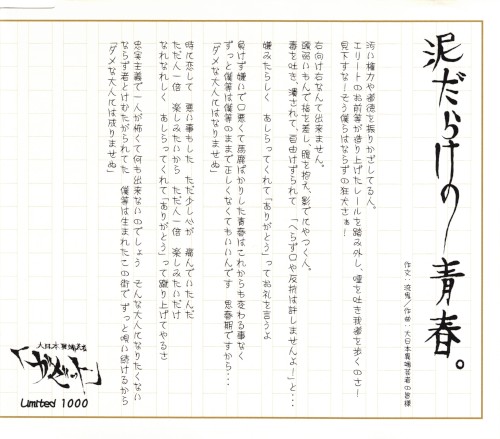 泥だらけの青春。
作文：流鬼／作帝・大日本異端芸者の皆様
汚い権力や道徳を振りかざしてる人。
エリートのお前等が造り上げたレールを踏み外し、唾を吐き我者を歩くのさ！
見下すな！そう僕らはならずの狂犬さぁ！
右向け右なんて出来ません。
頭弱いもんで指を差し、腹を抱え、影で叱やつく人。
毒を吐き、潰されて、自由けずられて「へらず口や反抗は許しませんよ！」と・・・
嫌みたらしく あしらってくれて「ありがとう」ってお礼を言うよ
負けず嫌いで口悪くて馬鹿ばかりした青春はこれからも変わる事なく
ずっと僕等は僕等のままで正しくなくてもいいんです 思春期ですから・・・
「ダメな大人には成りませぬ」
時に恋して 悪い事もした ただ少し心が 痛んでいたんだ
ただ人一倍 楽しみたいから ただ人一倍 楽しみたいだけ
なれなれしく あしらってくれて「ありがとう」って蹴り上げてやるさ
忠実主義で一人が怖くて何も出来ないのでしょう そんな大人になりたくない
ならず者とけむたがられてた 僕等は生まれたこの街でずっと唄い続けるから
「ダメな大人には成りませぬ」
大日本異端芸者
「ガゼット」
Limited 1000